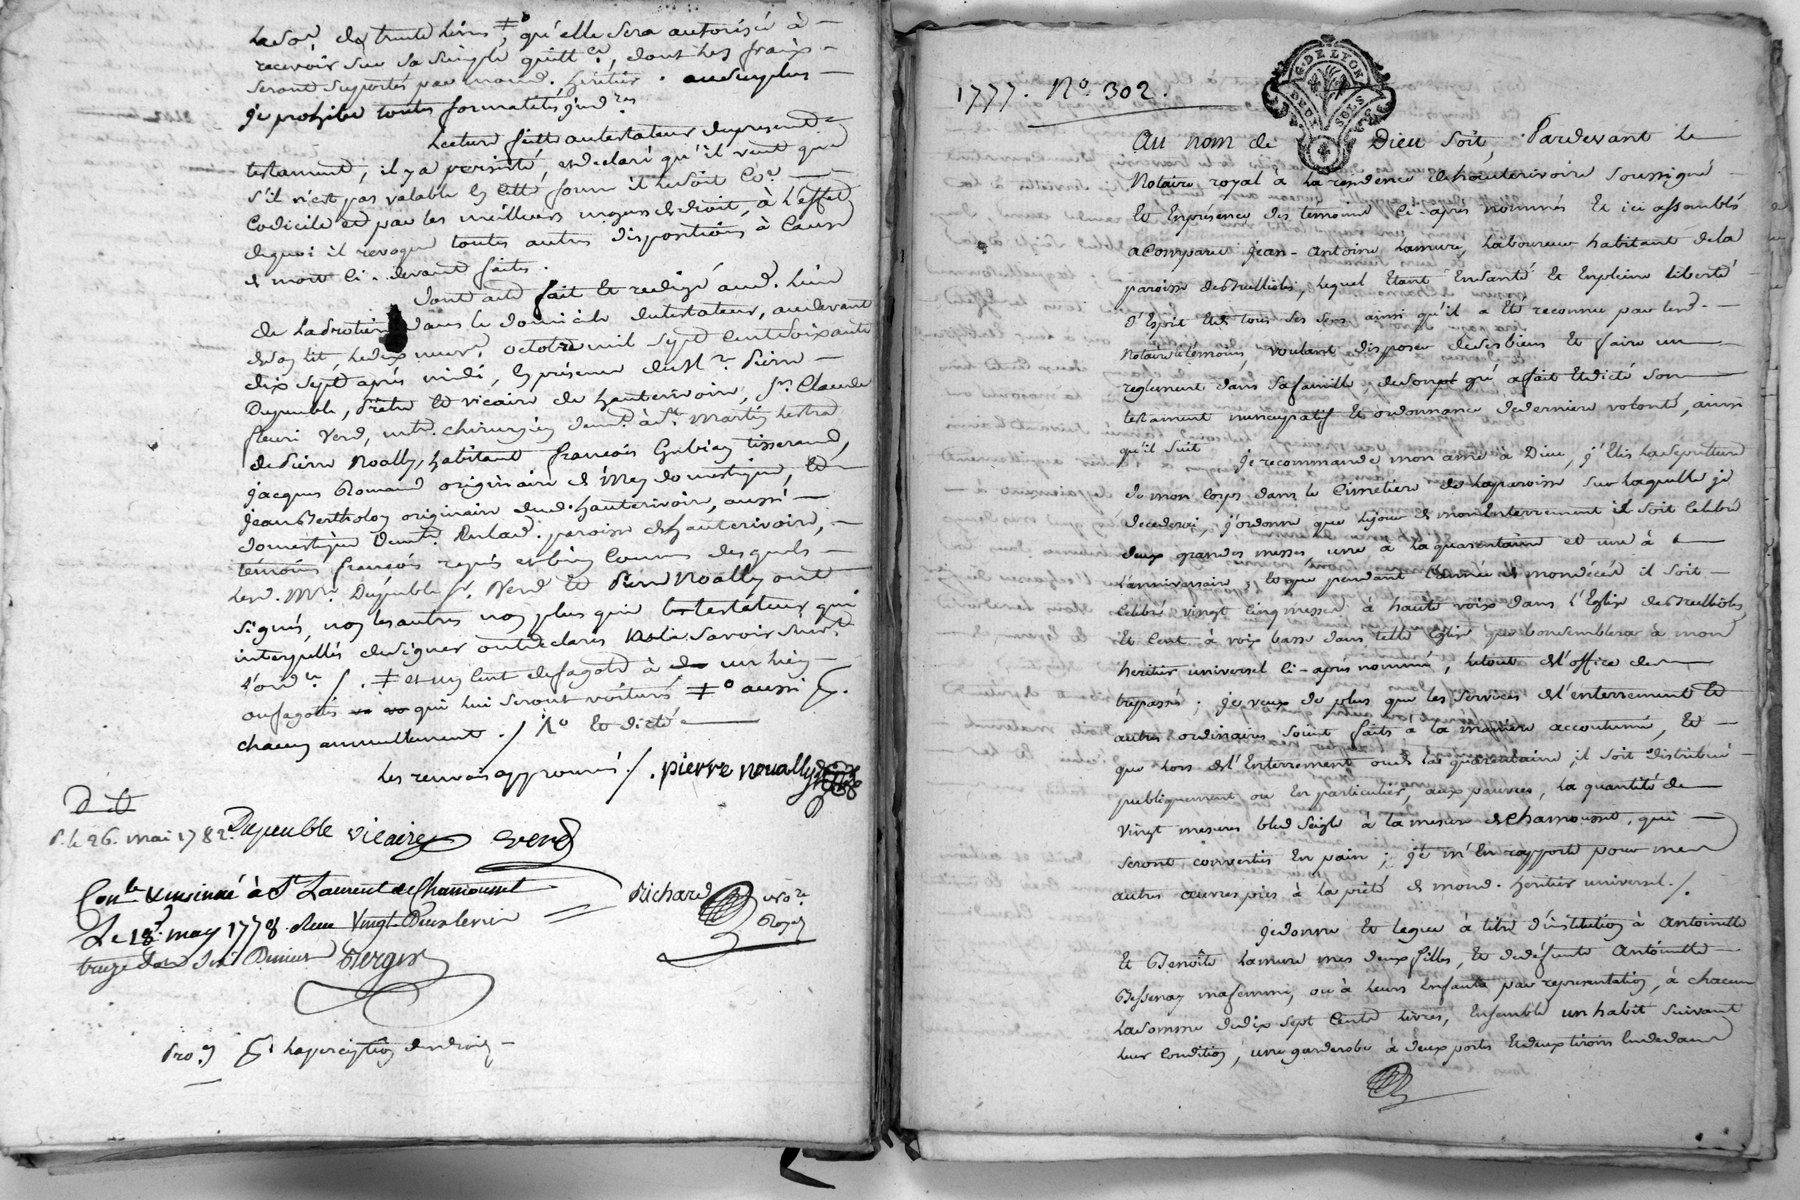 la so.e de trente livres ‡°, qu'elle sera autorisée à
recevoir sur sa simple quitt.ce, dont les fraix
seront suportés par mond. heritier. au surplus
je prohibe toutes formalités jud.res
Lecture faitte au testateur du present
testament, il y a persisté, et declaré qu'il veut que
s'il n'est pas valable en cette forme il le soit co.e
codicile et par les meilleurs moyens de droit, à l'effet
dequoi il revoque toutes autres dispositions à cause
de mort ci-devant faites.
Dont acte fait et redigé aud. lieu
de dans le domicile du testateur, au devant
de son lit, le dix neuf octobre mil sept cent soixante
dix sept après midi, en présence de M.r Pierre
Dupeuble, prêtre et vicaire de hauterivoire, s.r Claude
fleuri Verd, m.tre chirurgien dem.t à S.t Martin lestra
de Pierre Noally, habitant françois tisserand,
Jacques Romand originaire de domestique, et
Jean Bertholon originaire dud. hauterivoire, aussi
domestique dem.t paroisse de hauterivoire,
témoins françois requis et bien connus desquels
led. M.r Dupeuble s.r Verd et Pierre Noally ont
signés, non les autres non plus que le testateur qui
interpellés de signer ont declarés ne le savoir suiv.t
l'ord.ce /. ‡ et un cent de fagots à un lien
ou fagottes qui lui seront voiturés ‡° aussi
chacun annuellement ./ 1° et dicté
Les renvois approuvés ./. pierre noually
D. G.
P. le 26. mai 1782. Dupeuble vicaire Verd
Con.lé & insinué à S.t Laurent de Chamousset Richard no.re
Le 18 may 1778. Reçu Vingt Deux livres Royal
treize sols six Deniers Berger
Pro. la perception des droits
1777. N.o 302.
G. DE LYON
DEUX SOLS
Au nom de Dieu soit, Pardevant le
Notaire royal à la residence de hauterivoire soussigné
et en présence des témoins ci-après nommés et ici assemblés
a comparu Jean-Antoine Lamure, laboureur habitant de la
paroisse des hallles, lequel étant en santé et en pleine liberté
d'esprit et de tous ses sens ainsi qu'il a été reconnu par led.
Notaire & témoins, voulant disposer de ses biens et faire un
reglement dans sa famille, de son gré a fait et dicté son
testament nuncupatif et ordonnance de derniere volonté, ainsi
qu'il suit Je recommande mon ame à Dieu, j'élis la sepulture
de mon corps dans le cimetiere de la paroisse sur laquelle je
decederai, j'ordonne que le jour de mon enterrement il soit celebré
deux grandes messes, une à la quarantaine et une à
l'anniversaire, & que pendant l'année de mon décès il soit
celebré vingt cinq messes à haute voix dans l'Eglise
et cent à voix basse dans telle Eglise que bon semblera à mon
heritier universel ci-après nommé, le tout de l'office des
trepassés; je veux de plus que les services de l'enterrement et
autres ordinaires soient faits à la manière accoutumée, et
que lors de l'enterrement ou de la quarantaine, il soit distribué
publiquement ou en particulier, aux pauvres, la quantité de
vingt mesures bled seigle à la mesure de Chamousset, qui
seront convertis en pain; je m'en rapporte pour mes
autres œuvres pies à la piété de mond. heritier universel ./.
Je donne et legue à titre d'institution à Antoinette
et Benoîte Lamure mes deux filles, et de defunte Antoinette
Bessenay ma femme, ou à leurs enfants par representation, à chacune
la somme de dix sept cents livres, ensemble un habit suivant
leur condition, une garderobe à deux portes et deux tiroirs en dedans